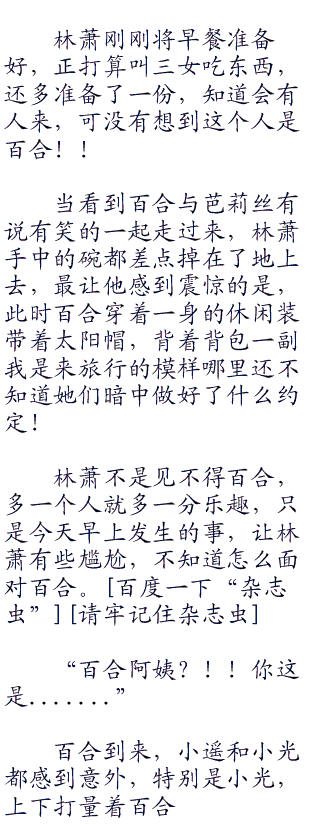 林萧刚刚将早餐准备
好，正打算叫三女吃东西，
还多准备了一份，知道会有
人来，可没有想到这个人是
百合！！
当看到百合与芭莉丝有
说有笑的一起走过来，林萧
手中的碗都差点掉在了地上
去，最让他感到震惊的是，
此时百合穿着一身的休闲装
带着太阳帽，背着背包一副
我是来旅行的模样哪里还不
知道她们暗中做好了什么约
定！
林萧不是见不得百合，
多一个人就多一分乐趣，只
是今天早上发生的事，让林
萧有些尴尬，不知道怎么面
对百合。[百度一下“杂志
虫”][请牢记住杂志虫]
“百合阿姨？！！你这
是.......”
百合到来，小遥和小光
都感到意外，特别是小光，
上下打量着百合